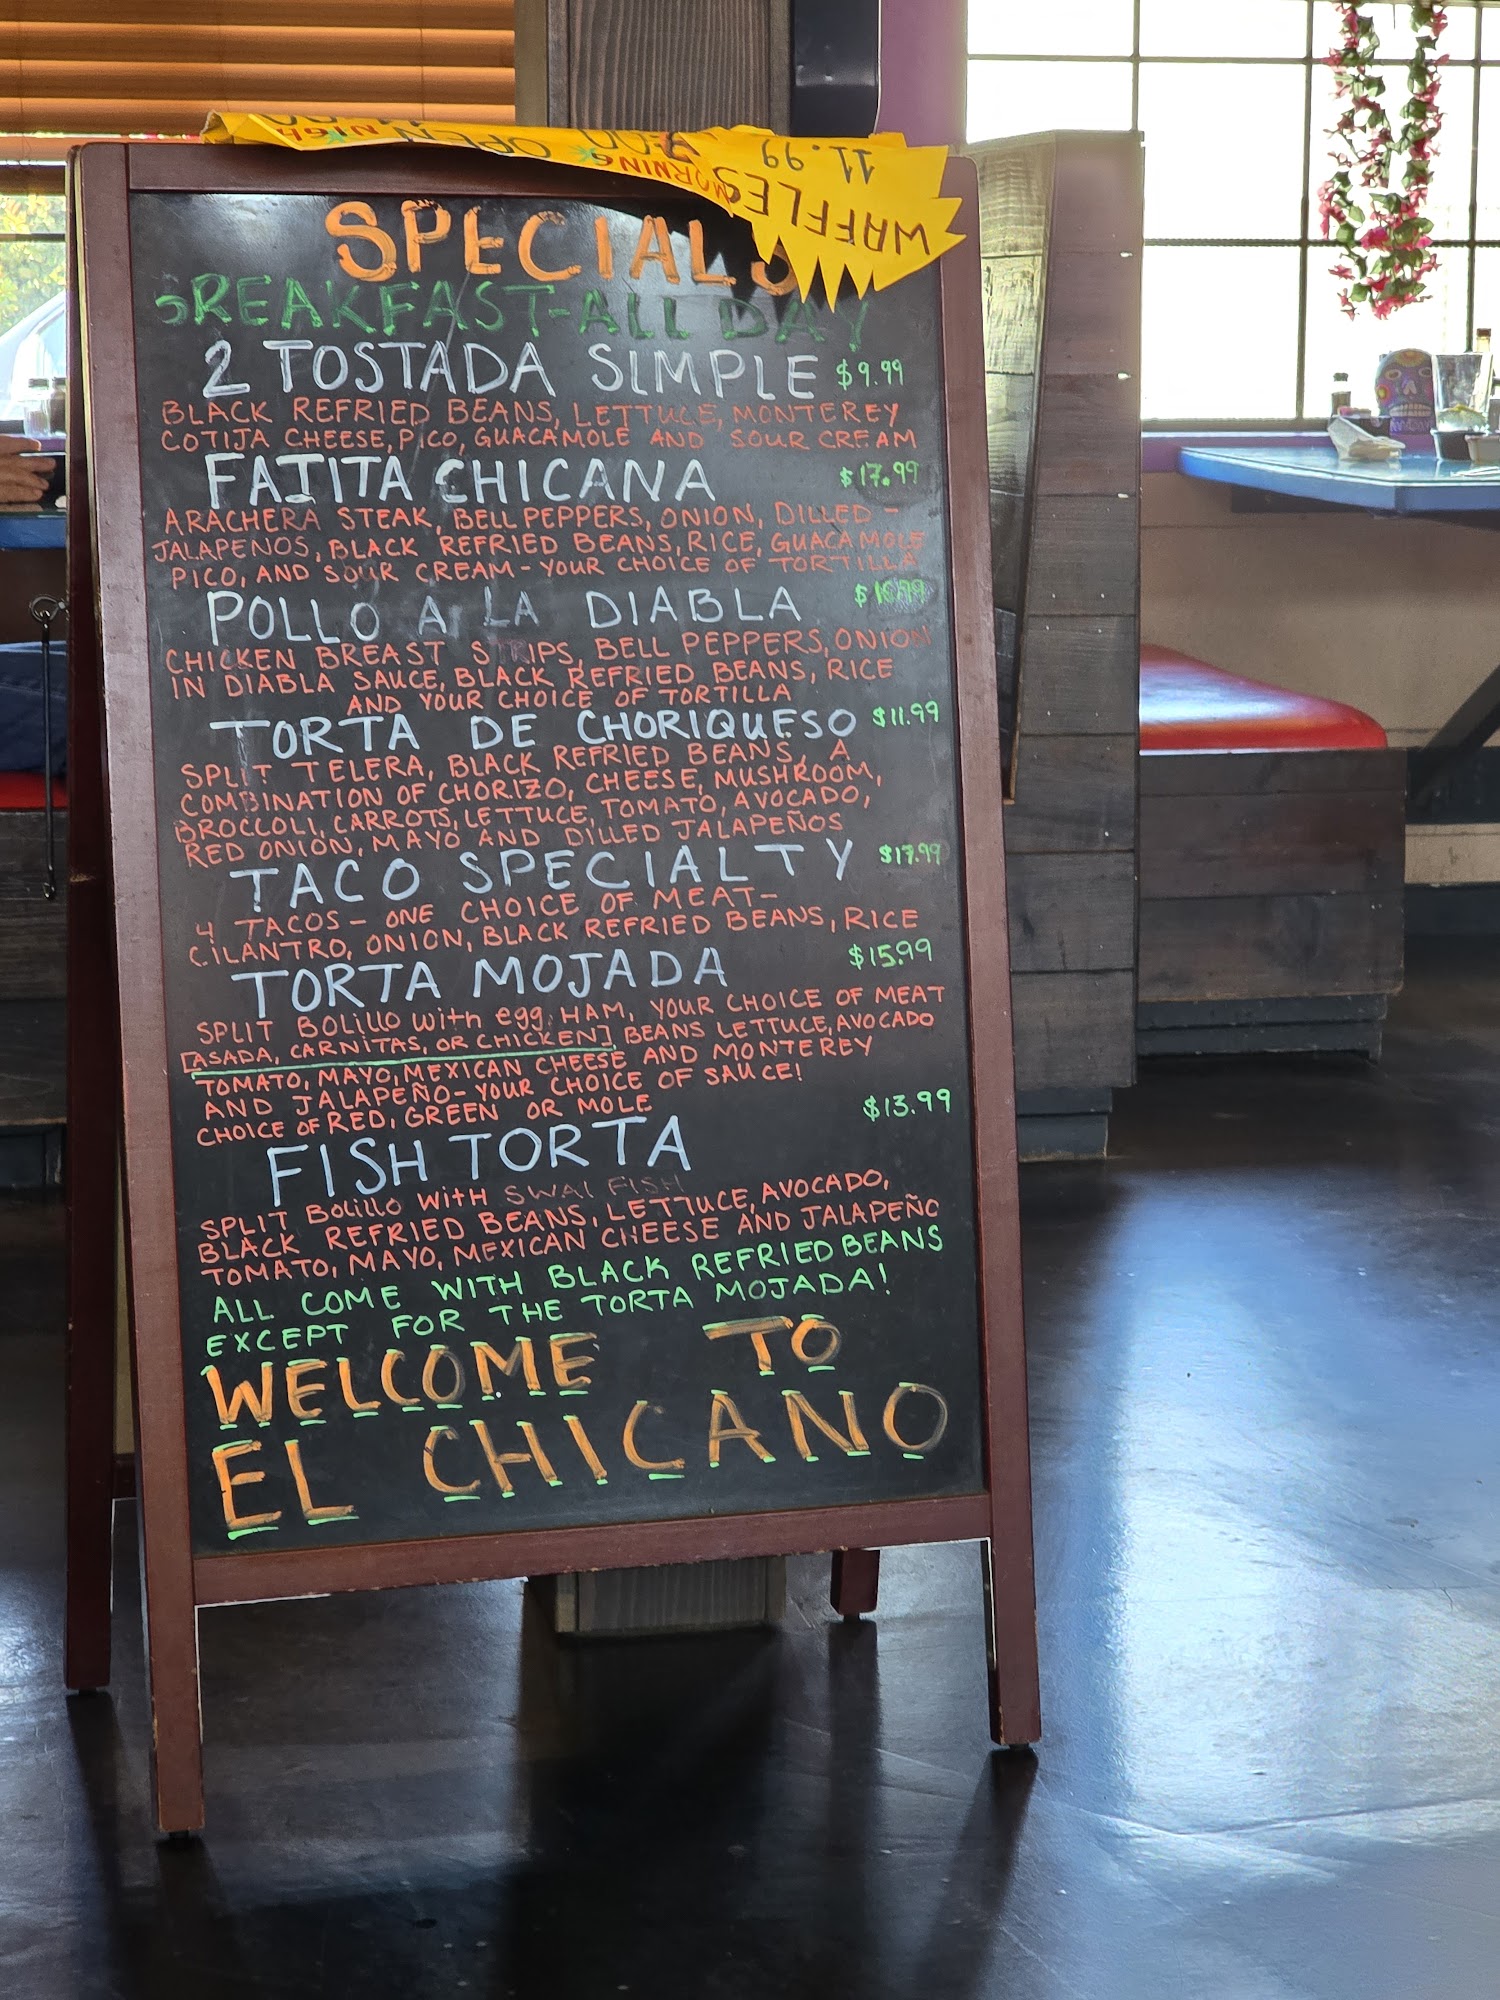 WAFFLES
11.99
MORNING
OPEN
SPECIALS
BREAKFAST-ALL DAY
2 TOSTADA SIMPLE $9.99
BLACK REFRIED BEANS, LETTUCE, MONTEREY
COTIJA CHEESE, PICO, GUACAMOLE AND SOUR CREAM
FAJITA CHICANA $17.99
ARACHERA STEAK, BELL PEPPERS, ONION, DILLED -
JALAPENOS, BLACK REFRIED BEANS, RICE, GUACAMOLE
PICO, AND SOUR CREAM - YOUR CHOICE OF TORTILLA
POLLO A LA DIABLA
CHICKEN BREAST STRIPS, BELL PEPPERS, ONION
IN DIABLA SAUCE, BLACK REFRIED BEANS, RICE
AND YOUR CHOICE OF TORTILLA
TORTA DE CHORIQUESO $11.99
SPLIT TELERA, BLACK REFRIED BEANS, A
COMBINATION OF CHORIZO, CHEESE, MUSHROOM,
BROCCOLI, CARROTS, LETTUCE, TOMATO, AVOCADO,
RED ONION, MAYO AND DILLED JALAPEÑOS
TACO SPECIALTY $17.99
4 TACOS - ONE CHOICE OF MEAT -
CILANTRO, ONION, BLACK REFRIED BEANS, RICE
TORTA MOJADA $15.99
SPLIT BOLILLO WITH egg, HAM, YOUR CHOICE OF MEAT
[ASADA, CARNITAS, OR CHICKEN], BEANS LETTUCE, AVOCADO
TOMATO, MAYO, MEXICAN CHEESE AND MONTEREY
AND JALAPEÑO - YOUR CHOICE OF SAUCE!
CHOICE OF RED, GREEN OR MOLE
FISH TORTA $13.99
SPLIT BOLILLO WITH SWAI FISH
BLACK REFRIED BEANS, LETTUCE, AVOCADO,
TOMATO, MAYO, MEXICAN CHEESE AND JALAPEÑO
ALL COME WITH BLACK REFRIED BEANS
EXCEPT FOR THE TORTA MOJADA!
WELCOME TO
EL CHICANO